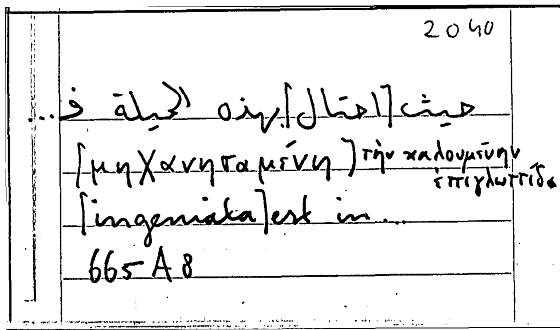 2040
حيث [احتال] بهذه الحيلة في...
[μηχανησαμένη] τὴν καλουμένην
ἐπιγλωττίδα
[ingeniata] est in...
665 A 8